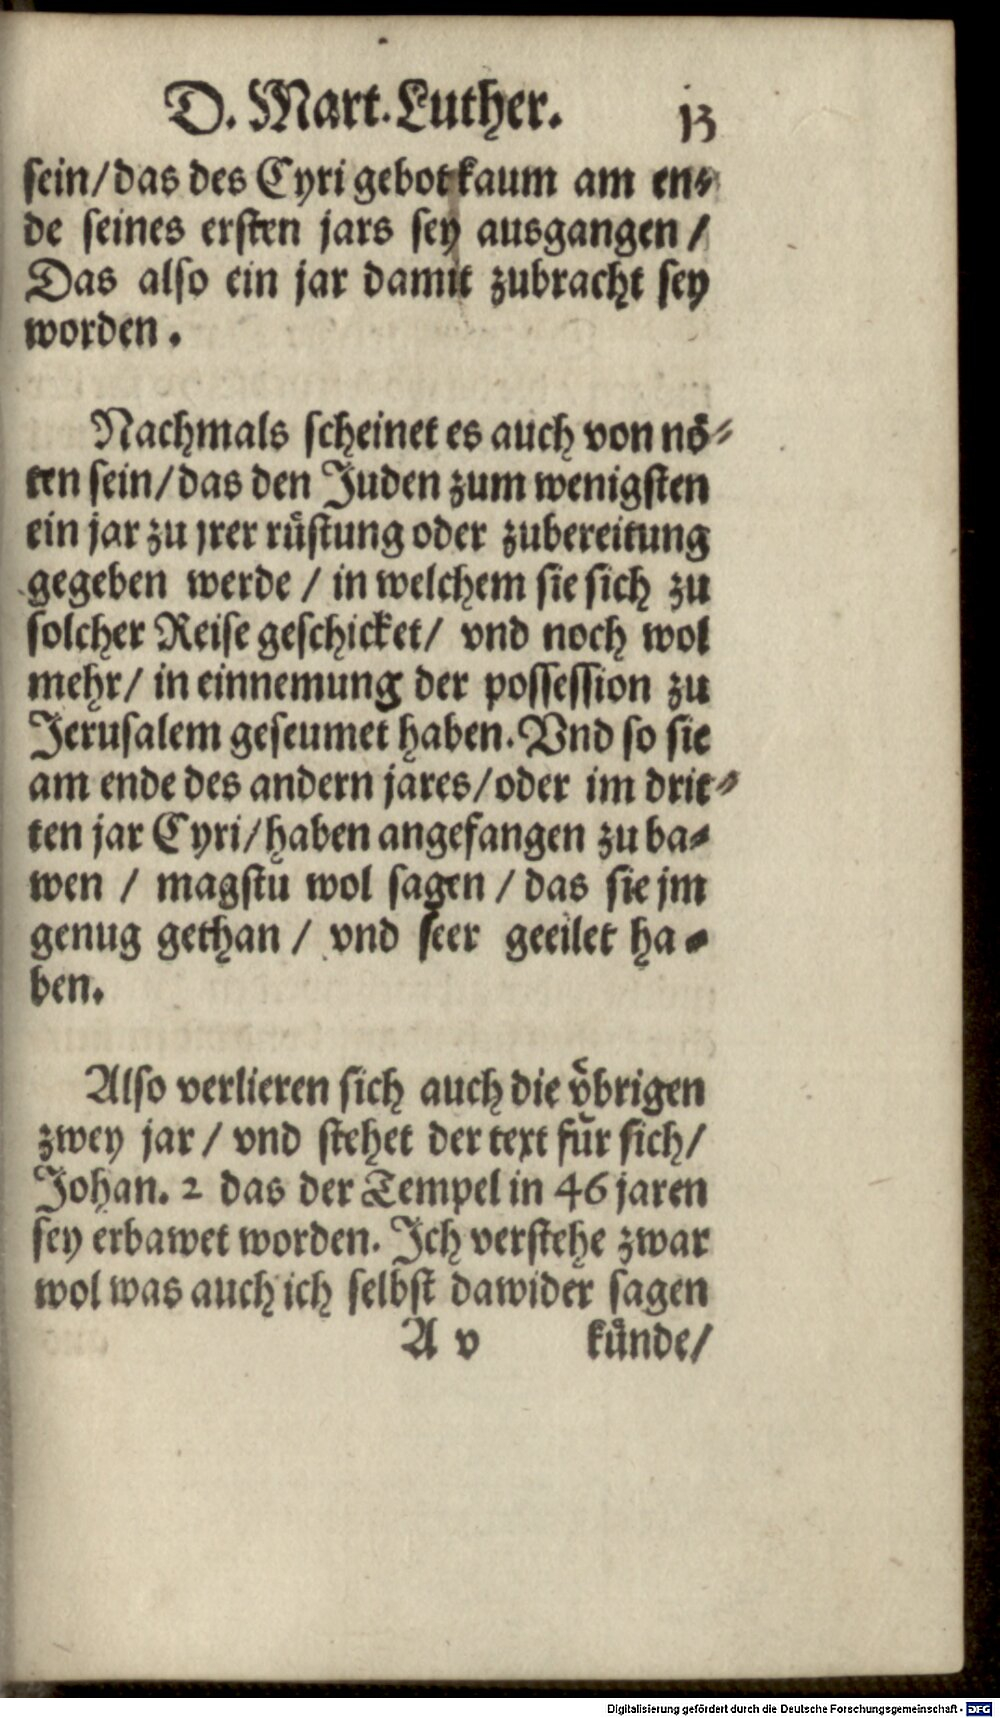 D. Mart. Luther. 13
sein/ das des Cyri gebot kaum am en⸗
de seines ersten jars sey ausgangen /
Das also ein jar damit zubracht sey
worden.
Nachmals scheinet es auch von nö⸗
ten sein/ das den Juden zum wenigsten
ein jar zu jrer rüstung oder zubereitung
gegeben werde / in welchem sie sich zu
solcher Reise geschicket/ vnd noch wol
mehr/ in einnemung der possession zu
Jerusalem geseumet haben. Vnd so sie
am ende des andern jares/ oder im drit⸗
ten jar Cyri/ haben angefangen zu ba⸗
wen / magstu wol sagen / das sie jm
genug gethan / vnd seer geeilet ha⸗
ben.
Also verlieren sich auch die vͤbrigen
zwey jar / vnd stehet der text für sich/
Johan. 2 das der Tempel in 46 jaren
sey erbawet worden. Ich verstehe zwar
wol was auch ich selbst dawider sagen
A v künde/
Digitalisierung gefördert durch die Deutsche Forschungsgemeinschaft - DFG